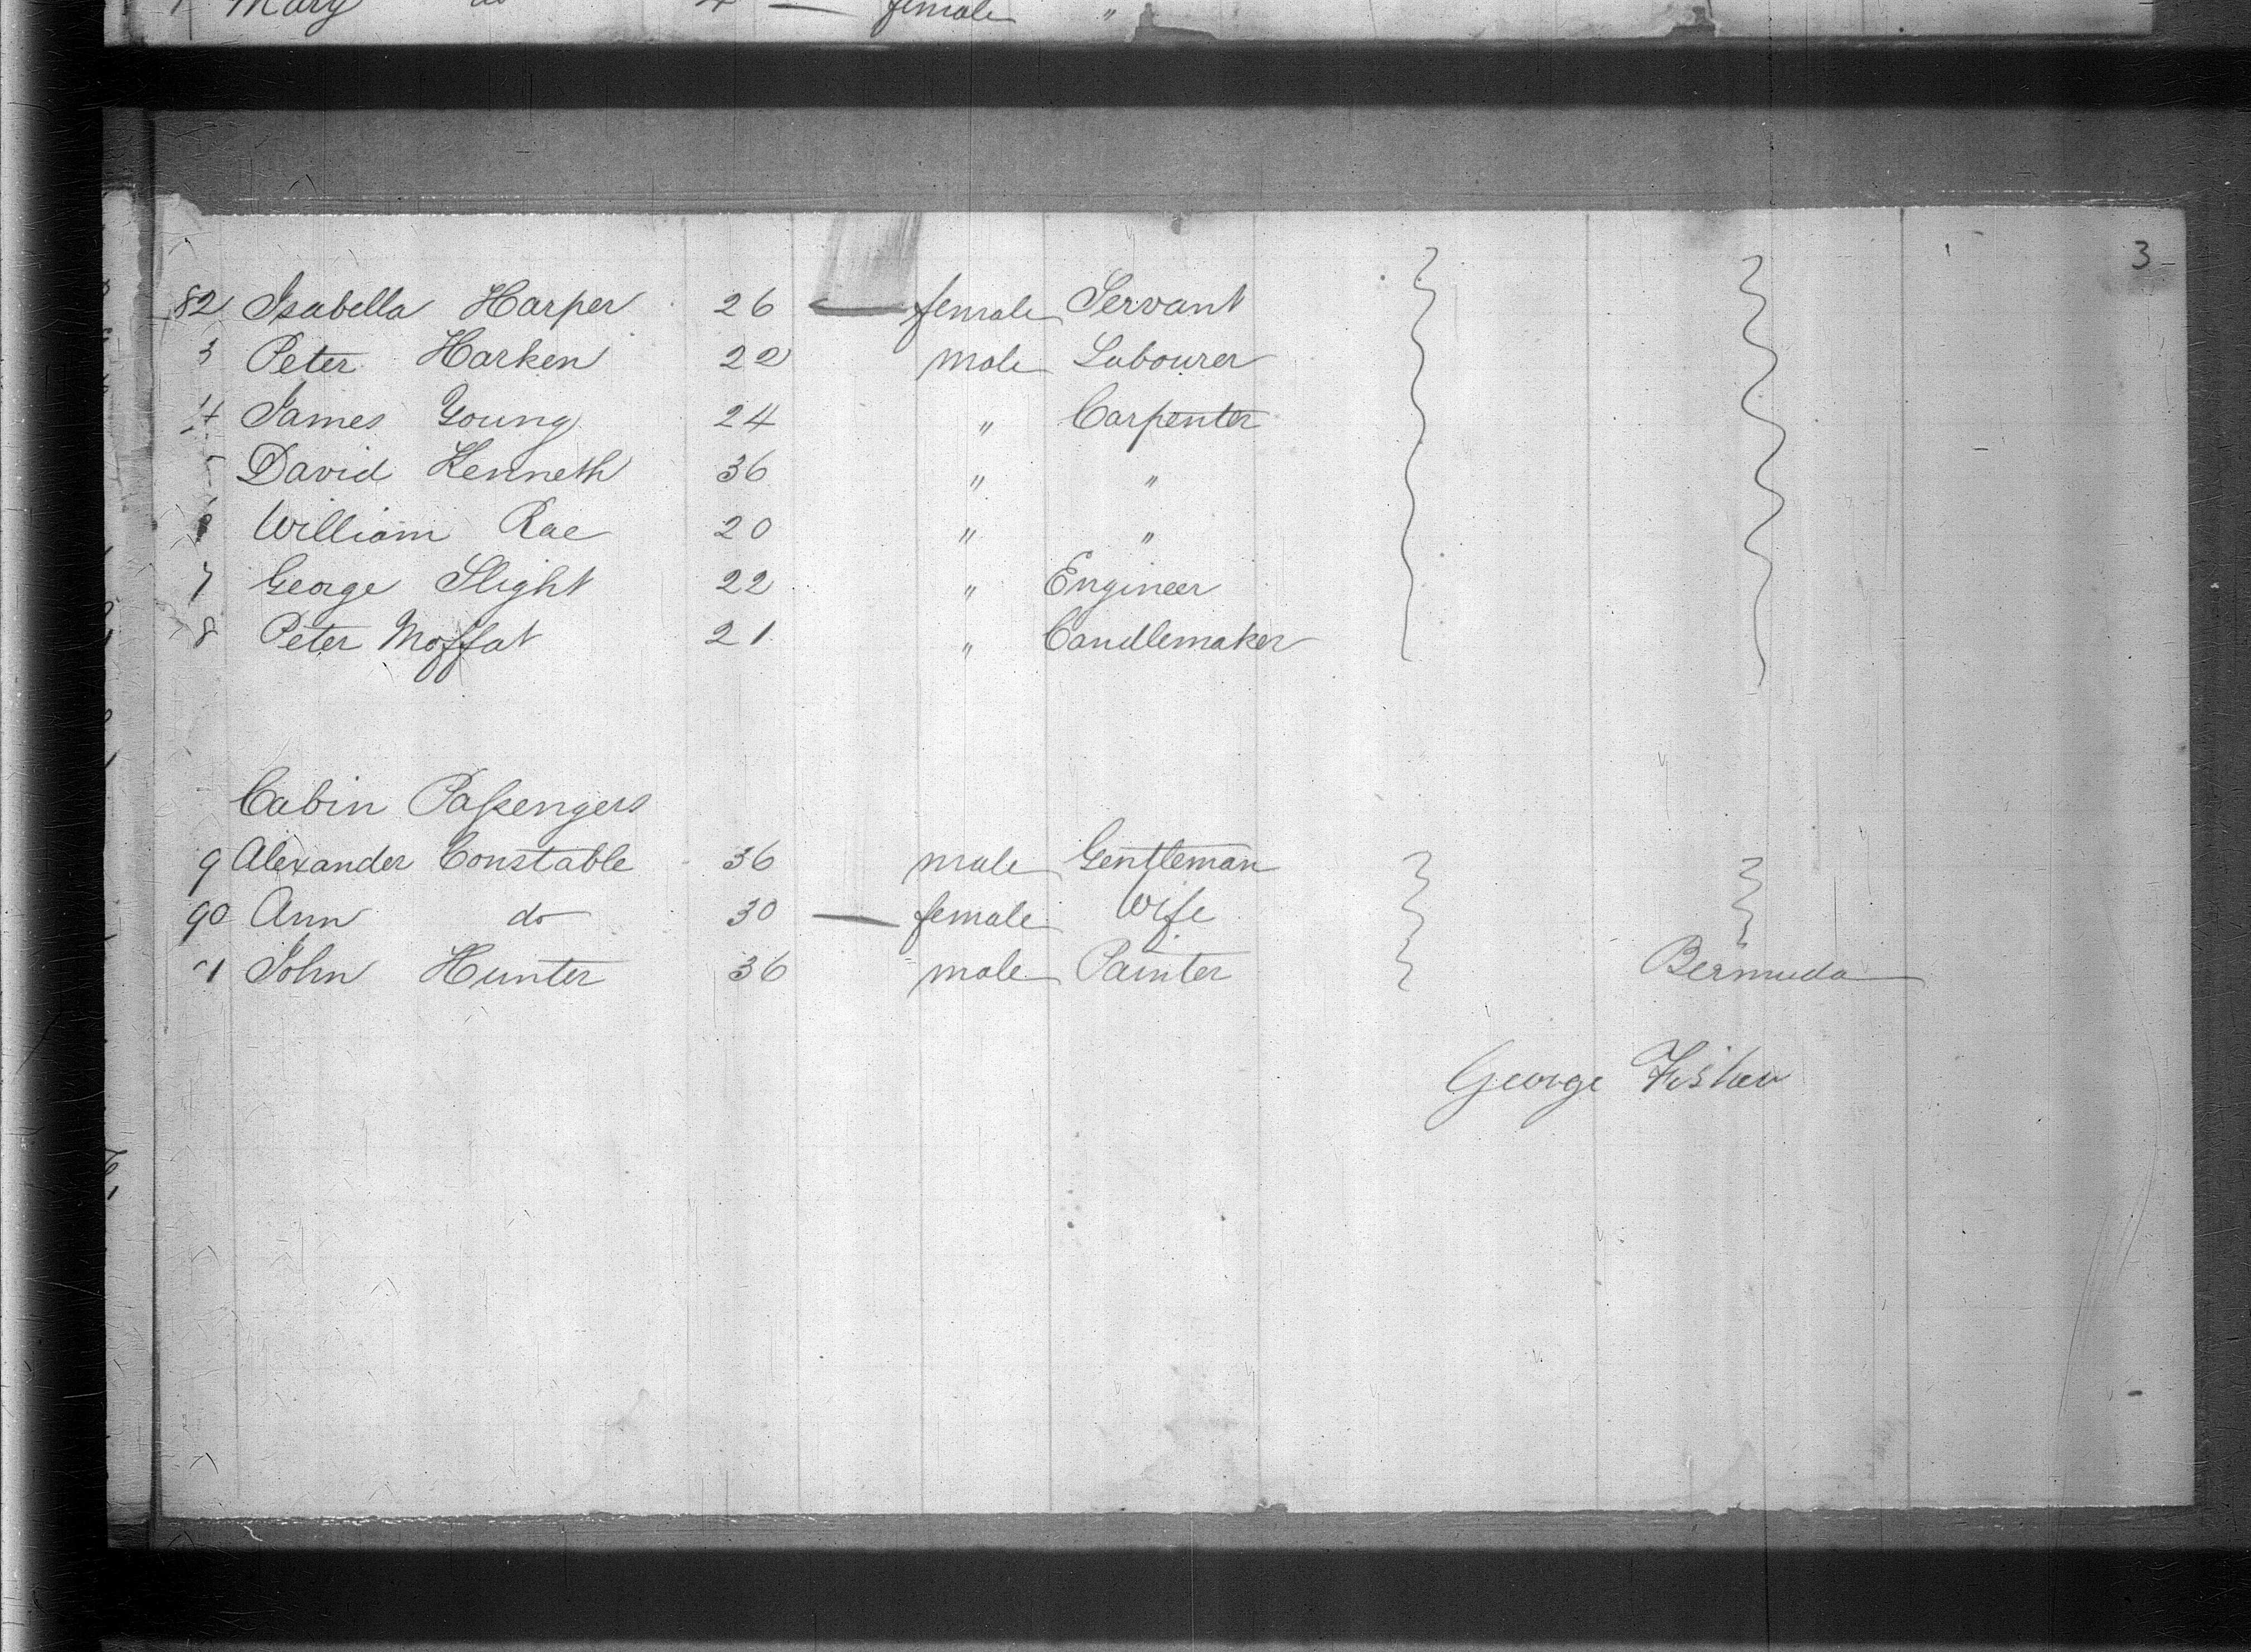 Mary do 4 — female "
3
82 Isabella Harper 26 — female Servant
3 Peter Harken 22 male Labourer
4 James Young 24 " Carpenter
5 David Kenneth 36 " "
William Rae 20 " "
7 George Slight 22 " Engineer
8 Peter Moffat 21 " Candlemaker
Cabin Passengers
9 Alexander Constable 36 male Gentleman
90 Ann do 30 — female Wife
1 John Hunter 36 male Painter Bermuda
George Fisher